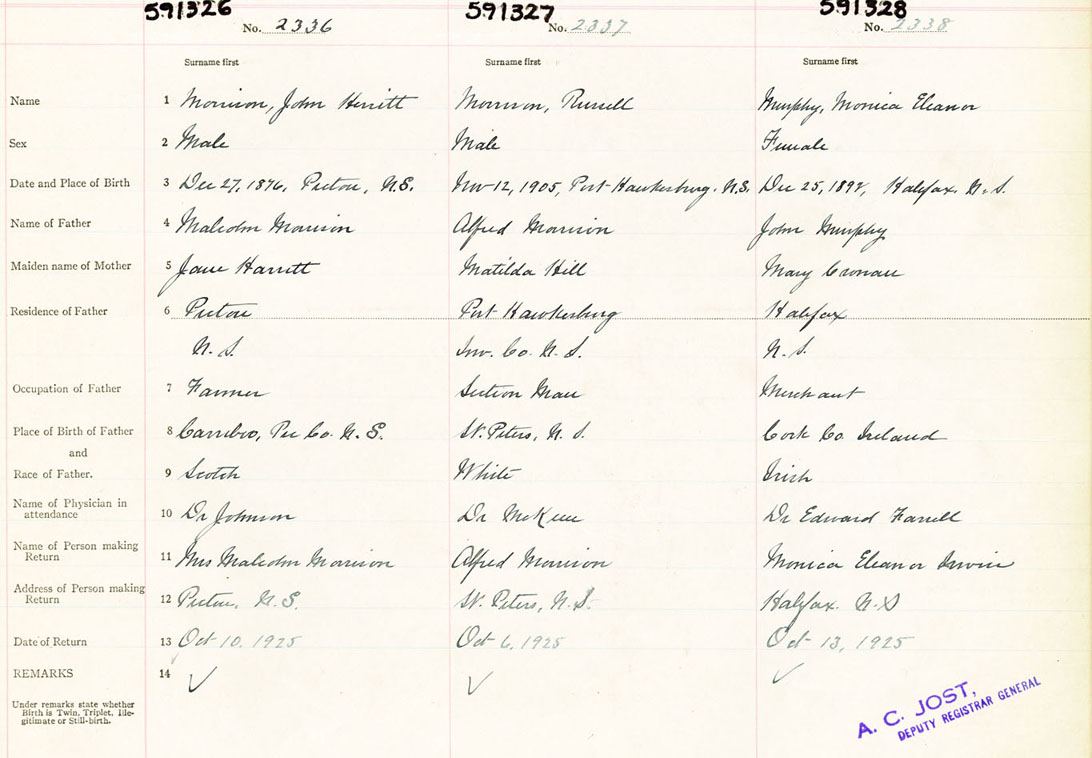 591326 591327 591328
No. 2336 No. 2337 No. 2338
Surname first Surname first Surname first
Name 1 Morrison, John Herritt Morrison, Russell Murphy, Monica Eleanor
Sex 2 Male Male Female
Date and Place of Birth 3 Dec 27, 1876, Pictou, N.S. Nov 12, 1905, Port Hawkesburg. N.S. Dec 25, Halifax. N.S.
Name of Father 4 Malcolm Morrison Alfred Morrison John Murphy
Maiden name of Mother 5 Jane Harritt Matilda Hill Mary Cronan
Residence of Father 6 Pictou Port Hawkesburg Halifax
N.S. Inv. Co. N.S. N.S.
Occupation of Father 7 Farmer Section Man Merchant
Place of Birth of Father 8 Carriboo, Pic Co. N.S. St. Peters, N.S. Cork Co. Ireland
and
Race of Father. 9 Scotch White Irish
Name of Physician in
attendance 10 Dr Johnson Dr McKeen Dr Edward Farrell
Name of Person making
Return 11 Mrs Malcolm Morrison Alfred Morrison Monica Eleanor Irwin
Address of Person making
Return 12 Pictou, N.S. St. Peters, N.S. Halifax. N.S
Date of Return 13 Oct 10, 1925 Oct 6, 1925 Oct 13, 1925
REMARKS 14 ✓ ✓ ✓
Under remarks state whether
Birth is Twin, Triplet, Ille-
gitimate or Still-birth.
A. C. JOST,
DEPUTY REGISTRAR GENERAL